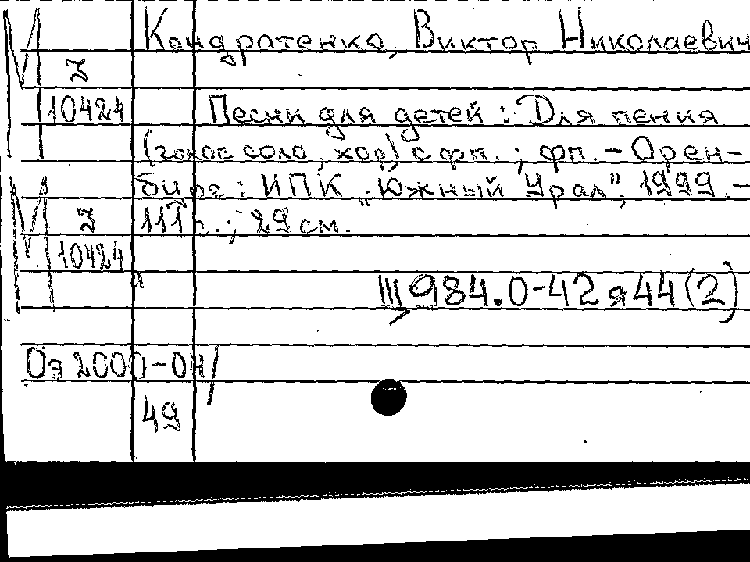 Кондратенко, Виктор Николаевич
М З 10424
Песни для детей : Для пения
(голос соло, хор) с фп. ; фп. - Орен-
бург : ИПК "Южный Урал", 1999. -
111 с. ; 29 см.
М З 10424
Ш 984.0-42 я44(2)
Оз 2000-04/
49